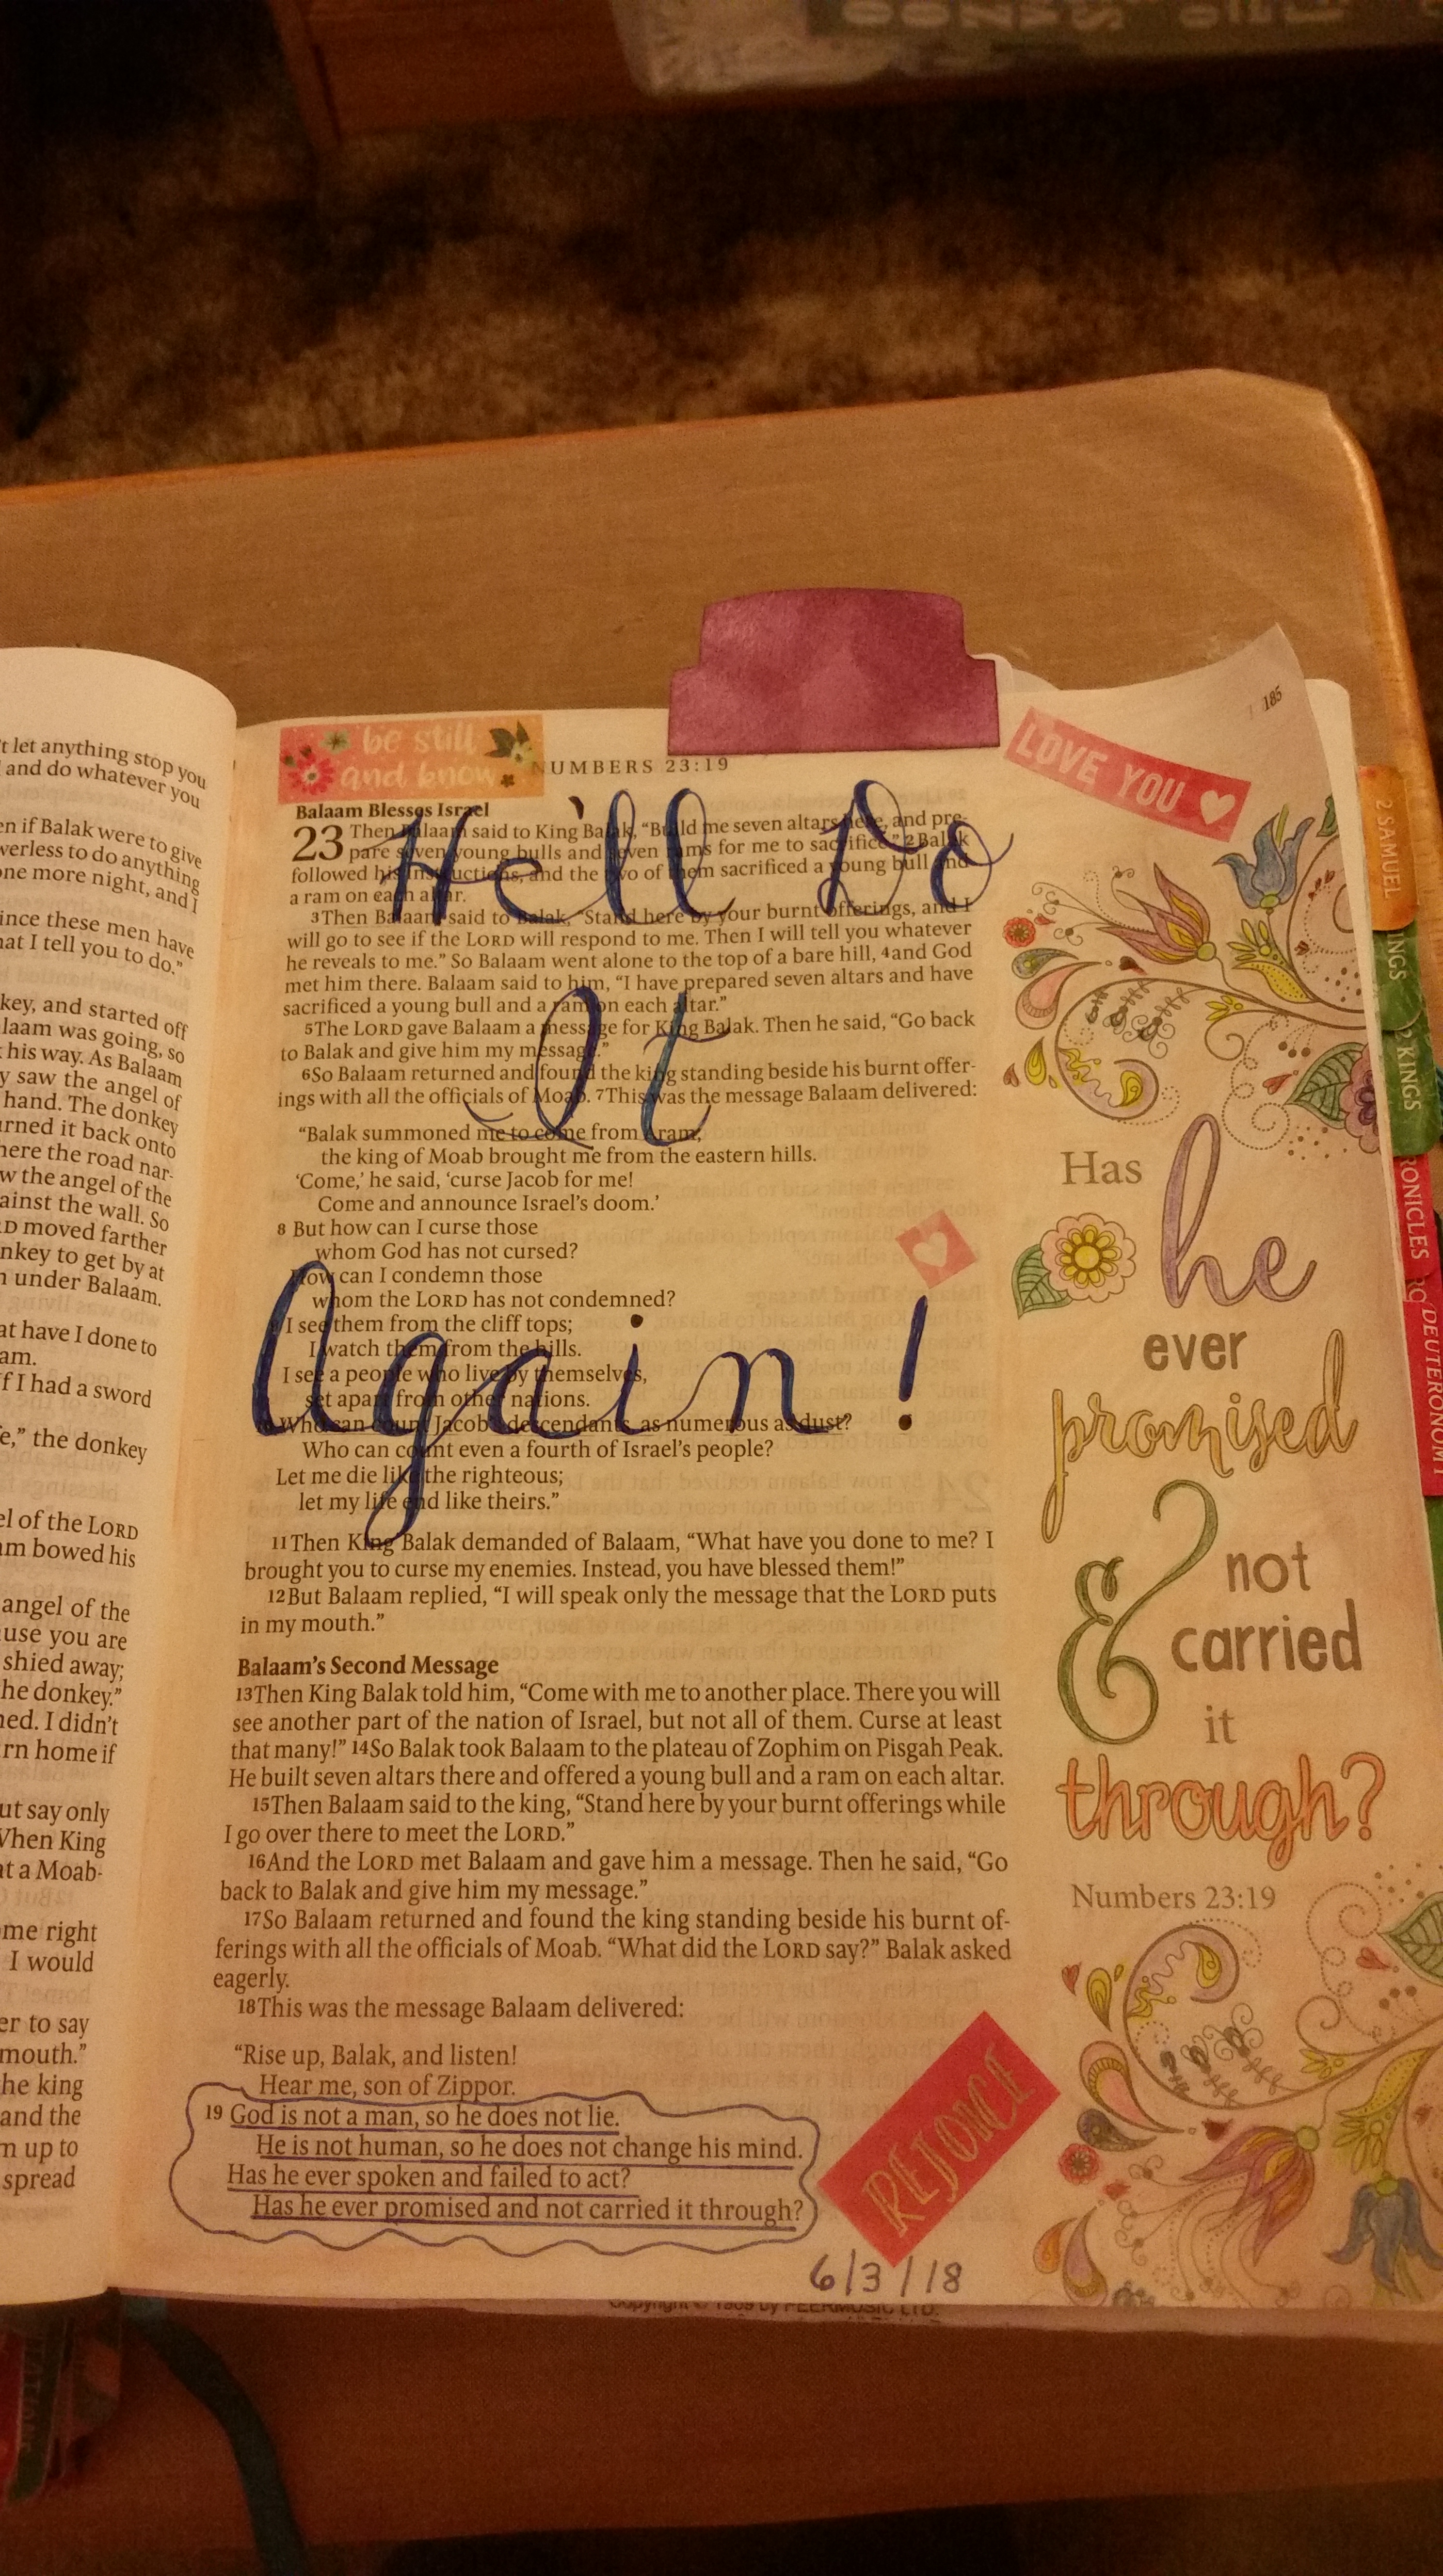 't let anything stop you
and do whatever you
en if Balak were to give
werless to do anything
one more night, and I
ince these men have
hat I tell you to do.”
key, and started off
laam was going, so
his way. As Balaam
y saw the angel of
hand. The donkey
urned it back onto
here the road nar-
w the angel of the
ainst the wall. So
RD moved farther
nkey to get by at
n under Balaam.
at have I done to
am.
f I had a sword
e,” the donkey
el of the LORD
am bowed his
angel of the
use you are
shied away;
he donkey.”
ned. I didn't
rn home if
ut say only
When King
at a Moab-
me right
I would
er to say
mouth.”
he king
and the
m up to
spread
be still
and know
NUMBERS 23:19
LOVE YOU
185
He'll Do
It
Again!
Balaam Blesses Israel
23 Then Balaam said to King Balak, “Build me seven altars here, and pre-
pare seven young bulls and seven rams for me to sacrifice.” 2 Balak
followed his instructions, and the two of them sacrificed a young bull and
a ram on each altar.
3 Then Balaam said to Balak, “Stand here by your burnt offerings, and I
will go to see if the LORD will respond to me. Then I will tell you whatever
he reveals to me.” So Balaam went alone to the top of a bare hill, 4 and God
met him there. Balaam said to him, “I have prepared seven altars and have
sacrificed a young bull and a ram on each altar.”
5 The LORD gave Balaam a message for King Balak. Then he said, “Go back
to Balak and give him my message.”
6 So Balaam returned and found the king standing beside his burnt offer-
ings with all the officials of Moab. 7 This was the message Balaam delivered:
“Balak summoned me to come from Aram;
the king of Moab brought me from the eastern hills.
‘Come,’ he said, ‘curse Jacob for me!
Come and announce Israel's doom.’
8 But how can I curse those
whom God has not cursed?
How can I condemn those
whom the LORD has not condemned?
I see them from the cliff tops;
I watch them from the hills.
I see a people who live by themselves,
set apart from other nations.
Who can count Jacob's descendants, as numerous as dust?
Who can count even a fourth of Israel's people?
Let me die like the righteous;
let my life end like theirs.”
11 Then King Balak demanded of Balaam, “What have you done to me? I
brought you to curse my enemies. Instead, you have blessed them!”
12 But Balaam replied, “I will speak only the message that the LORD puts
in my mouth.”
Balaam's Second Message
13 Then King Balak told him, “Come with me to another place. There you will
see another part of the nation of Israel, but not all of them. Curse at least
that many!” 14 So Balak took Balaam to the plateau of Zophim on Pisgah Peak.
He built seven altars there and offered a young bull and a ram on each altar.
15 Then Balaam said to the king, “Stand here by your burnt offerings while
I go over there to meet the LORD.”
16 And the LORD met Balaam and gave him a message. Then he said, “Go
back to Balak and give him my message.”
17 So Balaam returned and found the king standing beside his burnt of-
ferings with all the officials of Moab. “What did the LORD say?” Balak asked
eagerly.
18 This was the message Balaam delivered:
“Rise up, Balak, and listen!
Hear me, son of Zippor.
19 God is not a man, so he does not lie.
He is not human, so he does not change his mind.
Has he ever spoken and failed to act?
Has he ever promised and not carried it through?
REJOICE
6/3/18
Has
he
ever
promised
&
not
carried
it
through?
Numbers 23:19
2 SAMUEL
INGS
2 KINGS
RONICLES
DEUTERONOMY
Copyright © 1989 by PEERMUSIC LTD.